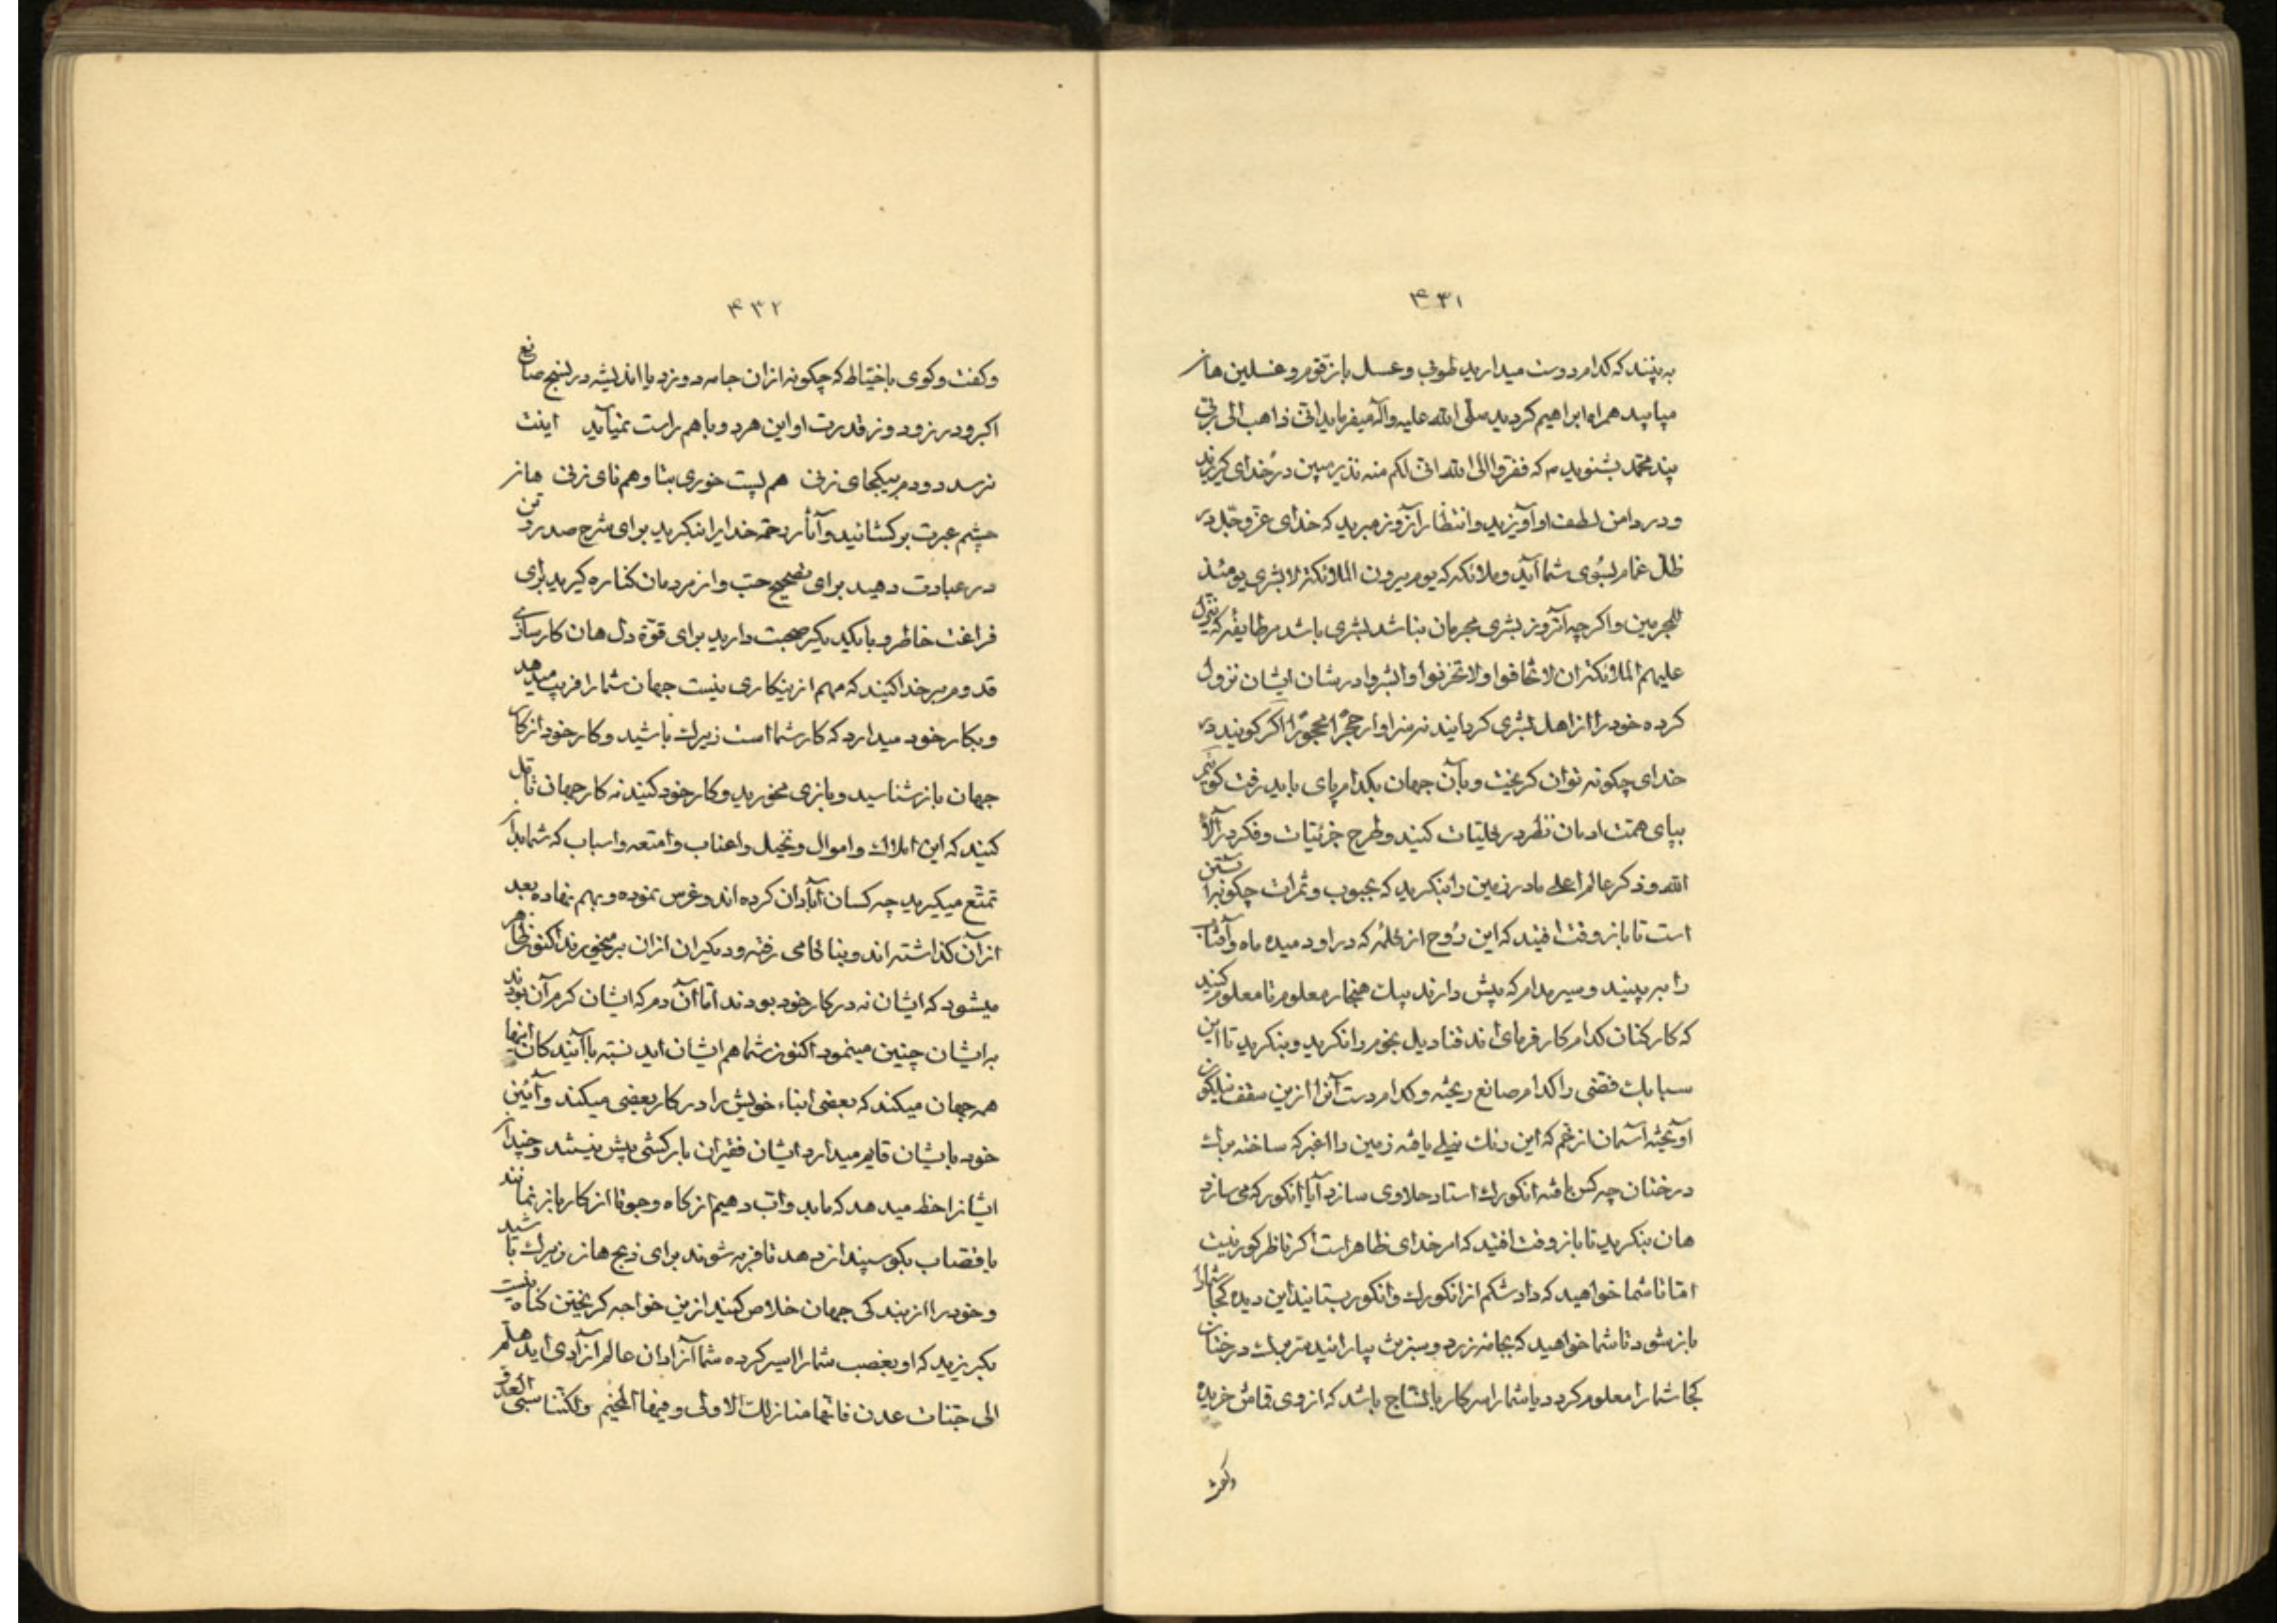 ۴۳۱
به بینند که کدام دوست میدارید طوبی و عسل یا زقوم و غسلین هان
میایید همراه ابراهیم کردید صلی الله علیه وآله میفرماید انی ذاهب الی ربی
پند محمد بشنوید م که ففروا الی الله انی لکم منه نذیر مبین در خدای کریزید
و در دامن لطف او آویزید و انتظار آنروز میبرید که خدای عز و جل در
ظلل غمام بسوی شما آید و ملائکه که یوم یرون الملائکة لا بشری یومئذ
للمجرمین و اکرچه آنروز بشری مجرمان نباشد بشری باشد مر طایفه که تتنزل
علیهم الملائکة ان لا تخافوا ولا تحزنوا وابشروا در شان ایشان نزول
کرده خود را از اهل بشری کردانید نه سزاوار حجرا محجورا اکر کویند در
خدای چکونه توان کریخت و بآن جهان بکدام پای باید رفت کوئیم
بپای همت ادمان نظر در کلیات کنید و طرح جزئیات و فکر در آلاء
الله و ذکر عالم اعلی مادر زمین را بنکرید که بحبوب و ثمرات چکونه آبستن
است تا باز وقت افتید که این روح از کلمه که در او دمیده ماه و آفتاب
را ببینید و سیر مدام که پیش دارند بیک هنجار معلوم تا معلوم کنید
که کارکنان کدام کارفرمای اند قنادیل نجوم را نکرید و بنکرید تا این
سبابک فضی را کدام صانع ریخته و کدام دست آنرا ازین سقف نیلکون
آویخته آسمان از خم که این رنک نیلی یافته زمین را اغبر که ساخته برک
درختان چه کس بافته انکور را استاد حلاوی سازد آیا انکور که می سازد
هان بنکرید تا باز وقت افتید که امر خدای ظاهر است اکر ناظر کور نیست
اما تا شما خواهید که داد شکم از انکور و انکور بستانید این دیده کجا شما را
باز شود تا شما خواهید که بجامه زرد و سبز تن بیارائید برک درختان
کجا شما را معلوم کردد یا شما را سر کار با نساج باشد که از وی قماش خریده
وکفت
۴۳۲
وکفت وکوی با خیاط که چکونه از آن جامه دوزد یا اندیشه در نسج صانع
اکبر ود رزود وز قدرت او این هر دو با هم راست نمیآید اینت
نرسد دو دم بیکجای زنی هم پست خوری بتا و هم نای زنی هان
چشم عبرت برکشائید و آثار رحمة خدایرا بنکرید برای شرح صدر و تن
در عبادت دهید برای تصحیح حب و از مردمان کناره کیرید برای
فراغت خاطر و با یکدیکر صحبت دارید برای قوة دل هان کارسازی
قدوم بر خدا کنید که مهم ازینکاری نیست جهان شما را فریب میدهد
و بکار خود میدارد که کار شما است زیرک باشید و کار خود از کار
جهان باز شناسید و بازی مخورید و کار خود کنید نه کار جهان تامل
کنید که این املاک و اموال و نخیل و اعناب و امتعه و اسباب که شما بدان
تمتع میکیرید چه کسان آبادان کرده اند و غرس نموده و بهم نهاده بعد
از آن کذاشته اند و بناکامی رفته و دیکران از آن برمیخورند اکنون ظاهر
میشود که ایشان نه در کار خود بودند اما آن دم که ایشان کرم آن بودند
به ایشان چنین مینمود اکنون شما هم ایشان اید نسبة با آیندکان اینها
همه جهان میکند که بعضی ابناء خویش را در کار بعضی میکند و آئین
خود بایشان قایم میدارد ایشان فقیران بارکشی بیش نیستند و چندان
ایشانرا حظ میدهد که ماید و اب دهیم از کاه و جو تا از کار باز نمانند
یا قصاب بکوسپندان دهد تا فربه شوند برای ذبح هان زیرک باشید
و خود را از بندکی جهان خلاص کنید ازین خواجه کریختن کناه نیست
بکریزید که او بغصب شما را اسیر کرده شما آزادان عالم آزادی اید هلم
الی جنات عدن فانها منازلک الاولی وفیها المخیم ولکننا سبی العدو